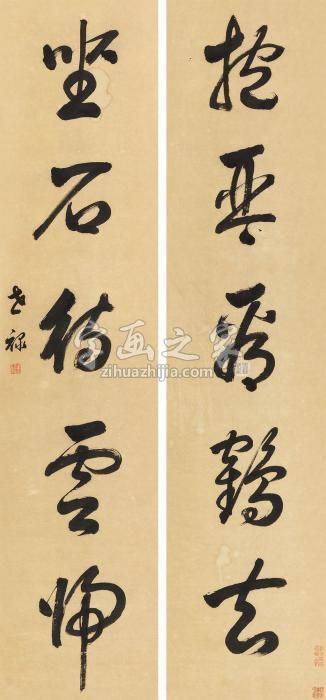 抱琴看鶴去
坐石待雲歸
世祿
字画之家
zihuazhijia.com